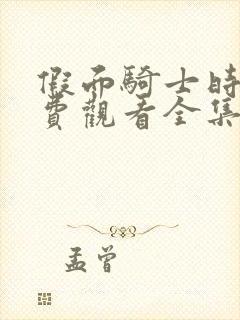 假面騎士時
費觀看全集
孟曾